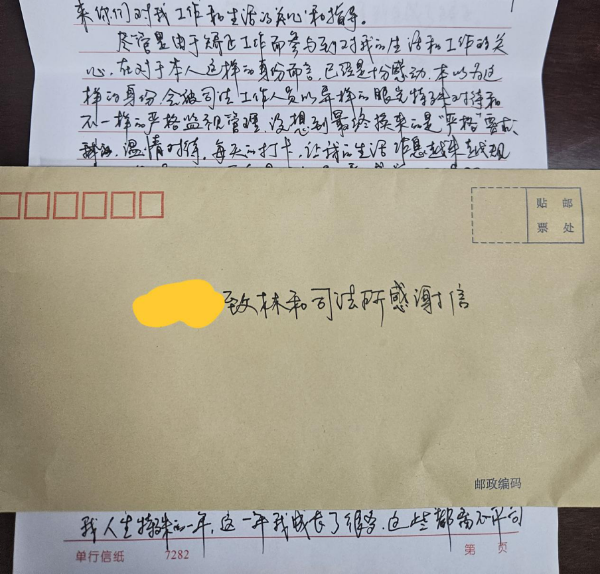 来你们对我工作和生活的关心和指导。
尽管是由于矫正工作而参与到对我的生活和工作的关
心，在对于本人这样的身份而言，已经是十分感动，本以为这
样的身份，会被司法工作人员以异样的眼光特殊对待和
不一样的严格监视管理，没想到最终换来的是“严格”要求
温情对待，每天的打卡，让我的生活作息越来越规
贴 邮
票 处
致林和司法所感谢信
邮政编码
我人生特殊的一年，这一年我成长了很多，这些都离不开司
单行信纸 7282 第 页